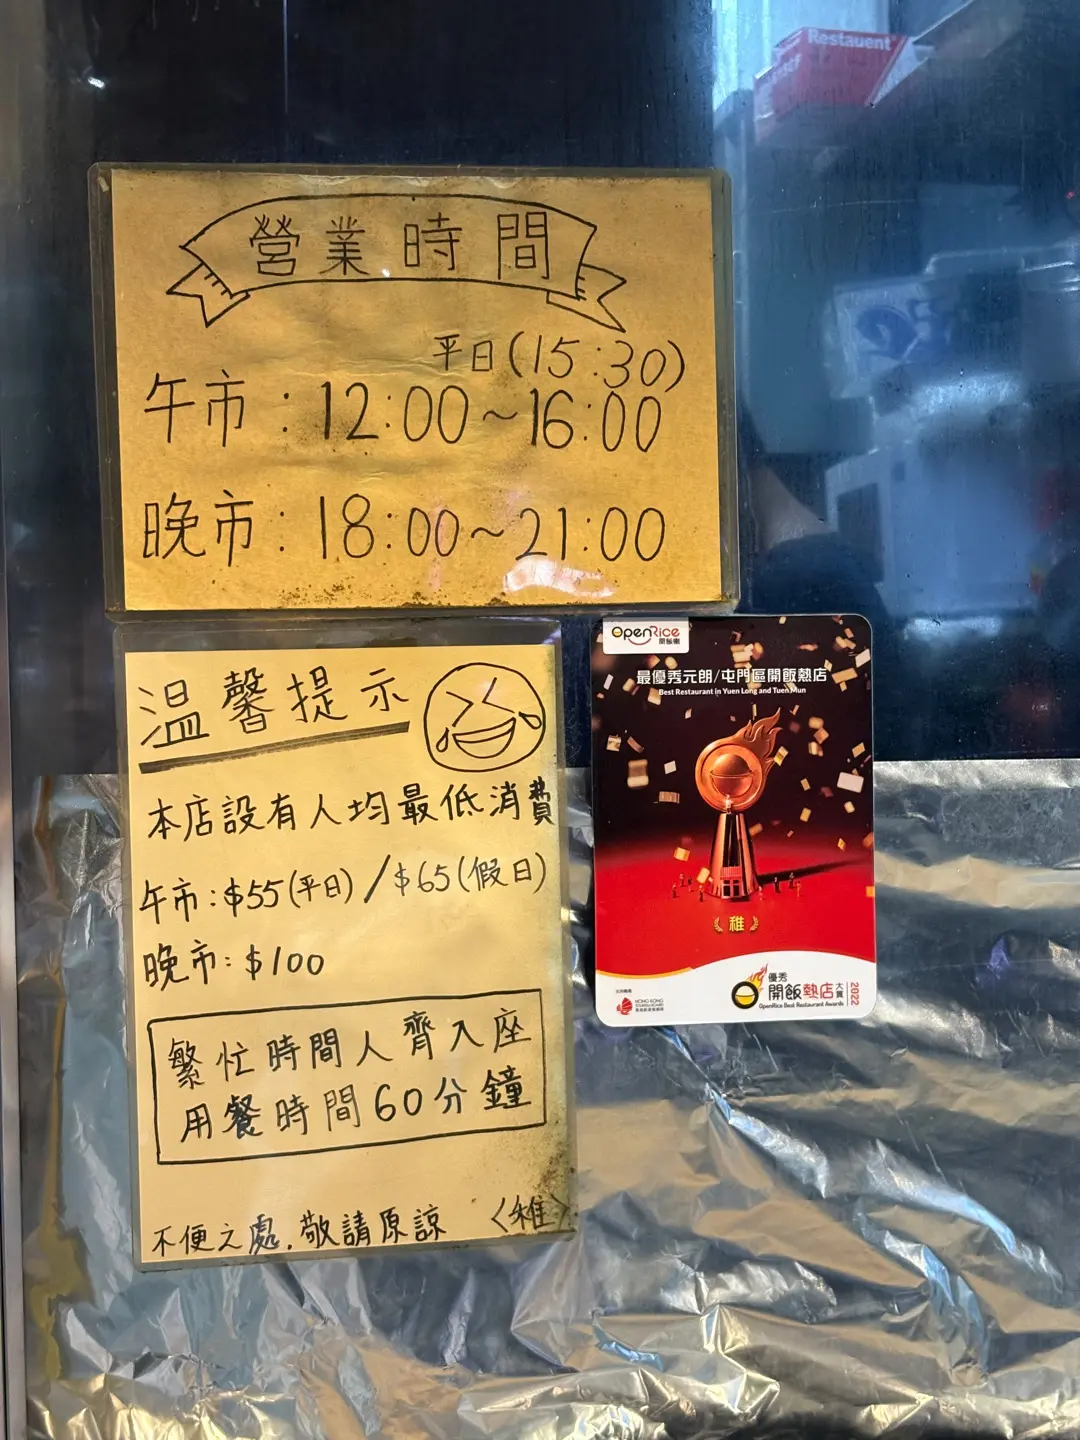 Restauent
營業時間
平日(15:30)
午市:12:00~16:00
晚市:18:00~21:00
溫馨提示
本店設有人均最低消費
午市:$55(平日)/$65(假日)
晚市:$100
繁忙時間人齊入座
用餐時間60分鐘
不便之處,敬請原諒 〈稚〉
OpenRice
開飯喇
最優秀元朗/屯門區開飯熱店
Best Restaurant in Yuen Long and Tuen Mun
稚
HONG KONG
TOURISM BOARD
香港旅遊發展局
優秀
開飯熱店大賞
OpenRice Best Restaurant Awards
2022